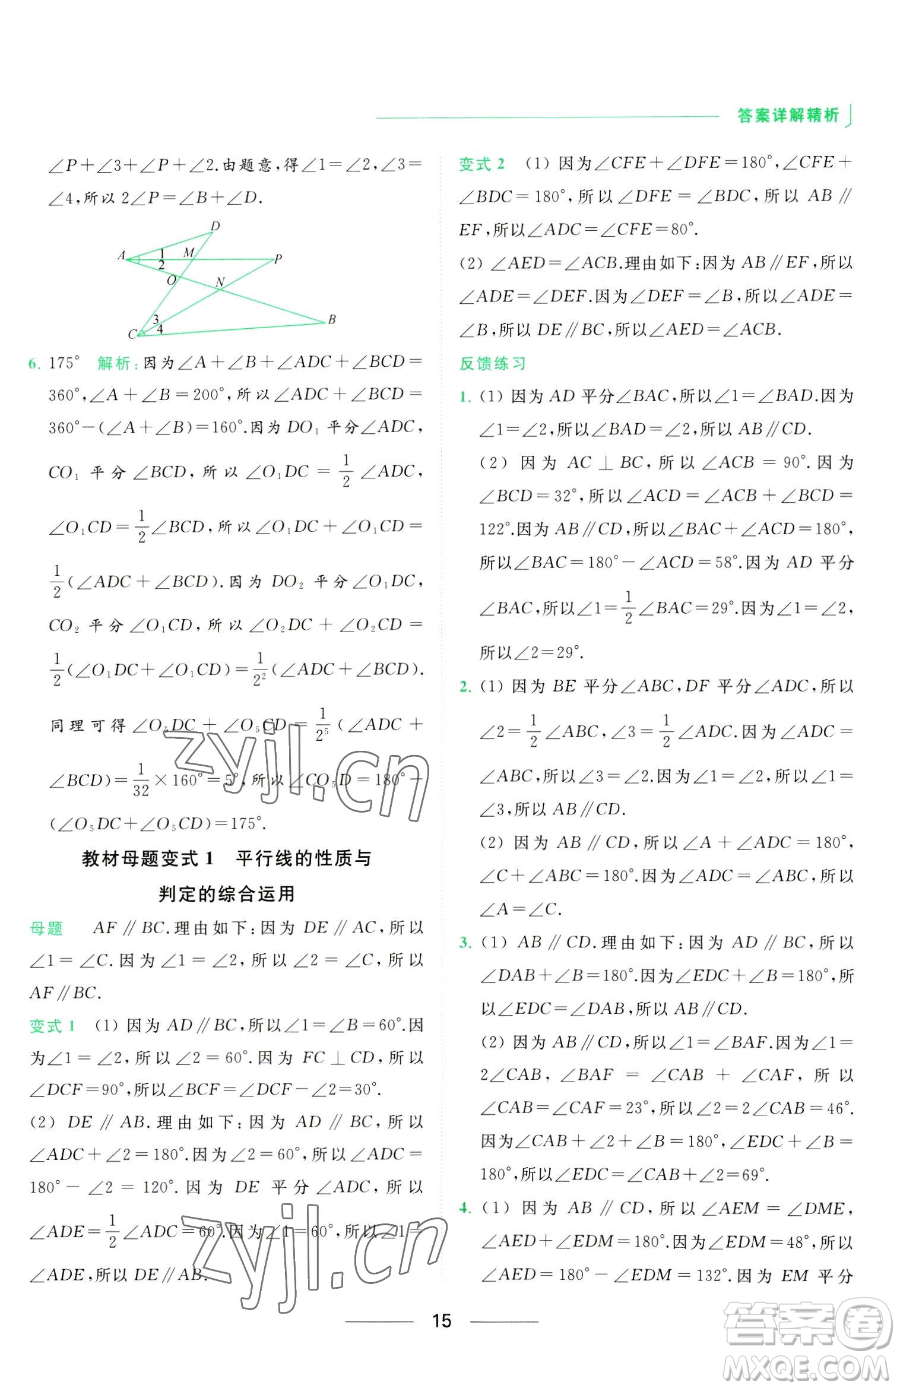 答案详解精析
∠P+∠3+∠P+∠2.由题意,得∠1=∠2,∠3=
∠4,所以 2∠P=∠B+∠D.
D
A
1
2
M
P
O
N
3
4
B
C
6. 175° 解析:因为∠A+∠B+∠ADC+∠BCD=
360°,∠A+∠B=200°,所以∠ADC+∠BCD=
360°-(∠A+∠B)=160°.因为 DO₁ 平分∠ADC,
CO₁ 平分∠BCD,所以∠O₁DC=1/2∠ADC,
∠O₁CD=1/2∠BCD,所以∠O₁DC+∠O₁CD=
1/2(∠ADC+∠BCD).因为 DO₂ 平分∠O₁DC,
CO₂ 平分∠O₁CD,所以∠O₂DC+∠O₂CD=
1/2(∠O₁DC+∠O₁CD)=1/2²(∠ADC+∠BCD).
同理可得∠O₅DC+∠O₅CD=1/2⁵(∠ADC+
∠BCD)=1/32×160°=5°,所以∠CO₅D=180°-
(∠O₅DC+∠O₅CD)=175°.
教材母题变式 1 平行线的性质与
判定的综合运用
母题 AF∥BC.理由如下:因为 DE∥AC,所以
∠1=∠C.因为∠1=∠2,所以∠2=∠C,所以
AF∥BC.
变式 1 (1) 因为 AD∥BC,所以∠1=∠B=60°.因
为∠1=∠2,所以∠2=60°.因为 FC⊥CD,所以
∠DCF=90°,所以∠BCF=∠DCF-∠2=30°.
(2) DE∥AB.理由如下:因为 AD∥BC,所以
∠ADC+∠2=180°.因为∠2=60°,所以∠ADC=
180°-∠2=120°.因为 DE 平分∠ADC,所以
∠ADE=1/2∠ADC=60°.因为∠1=60°,所以∠1=
∠ADE,所以 DE∥AB.
变式 2 (1) 因为∠CFE+∠DFE=180°,∠CFE+
∠BDC=180°,所以∠DFE=∠BDC,所以 AB∥
EF,所以∠ADC=∠CFE=80°.
(2) ∠AED=∠ACB.理由如下:因为 AB∥EF,所以
∠ADE=∠DEF.因为∠DEF=∠B,所以∠ADE=
∠B,所以 DE∥BC,所以∠AED=∠ACB.
反馈练习
1. (1) 因为 AD 平分∠BAC,所以∠1=∠BAD.因为
∠1=∠2,所以∠BAD=∠2,所以 AB∥CD.
(2) 因为 AC⊥BC,所以∠ACB=90°.因为
∠BCD=32°,所以∠ACD=∠ACB+∠BCD=
122°.因为 AB∥CD,所以∠BAC+∠ACD=180°,
所以∠BAC=180°-∠ACD=58°.因为 AD 平分
∠BAC,所以∠1=1/2∠BAC=29°.因为∠1=∠2,
所以∠2=29°.
2. (1) 因为 BE 平分∠ABC,DF 平分∠ADC,所以
∠2=1/2∠ABC,∠3=1/2∠ADC.因为∠ADC=
∠ABC,所以∠3=∠2.因为∠1=∠2,所以∠1=
∠3,所以 AB∥CD.
(2) 因为 AB∥CD,所以∠A+∠ADC=180°,
∠C+∠ABC=180°.因为∠ADC=∠ABC,所以
∠A=∠C.
3. (1) AB∥CD.理由如下:因为 AD∥BC,所以
∠DAB+∠B=180°.因为∠EDC+∠B=180°,所
以∠EDC=∠DAB,所以 AB∥CD.
(2) 因为 AB∥CD,所以∠1=∠BAF.因为∠1=
2∠CAB,∠BAF=∠CAB+∠CAF,所以
∠CAB=∠CAF=23°,所以∠1=2∠CAB=46°.
因为∠CAB+∠2+∠B=180°,∠EDC+∠B=
180°,所以∠EDC=∠CAB+∠2=69°.
4. (1) 因为 AB∥CD,所以∠AEM=∠DME,
∠AED+∠EDM=180°.因为∠EDM=48°,所以
∠AED=180°-∠EDM=132°.因为 EM 平分
15
zyjl.cn
zyjl.cn
答案圈
MXQE.COM